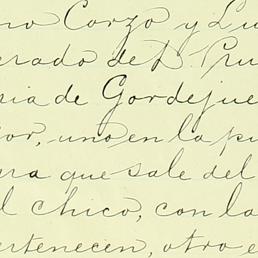 no Corzo y Lu
erado de D. Pru
ria de Gordejue
or, uno en la pu
ra que sale del
l chico, con la
ertenecen, otro e